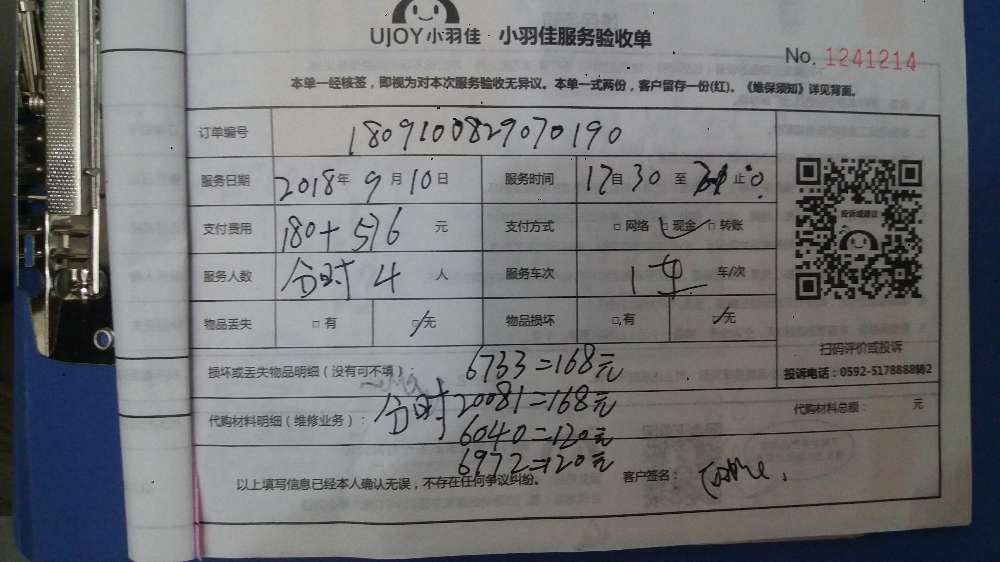 UJOY小羽佳 小羽佳服务验收单
No. 1241214
本单一经核签，即视为对本次服务验收无异议。本单一式两份，客户留存一份(红)。《维保须知》详见背面。
订单编号 1809100829070190
服务日期 2018年 9月10日 服务时间 17自30至 止
支付费用 180+516 元 支付方式 □网络 □现金 □转账
服务人数 分时 4 人 服务车次 1车 车/次
投诉或建议
物品丢失 □有 □无 物品损坏 □有 □无
扫码评价或投诉
损坏或丢失物品明细（没有可不填）： 6733=168元
投诉电话：0592-5178888转2
代购材料明细（维修业务）： 分时 20081=168元 代购材料总额： 元
6040=120元
6972=120元
以上填写信息已经本人确认无误，不存在任何争议纠纷。 客户签名：